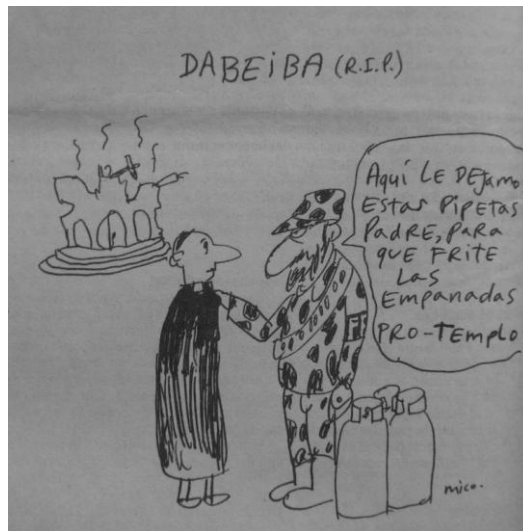 DABEIBA (R.I.P.)
Aquí LE DEjamo
ESTAS PiPETAS
PADRE, PARA
QUE FRITE
LAS
EmpANADAS
PRO-TEmplo
F
mico.